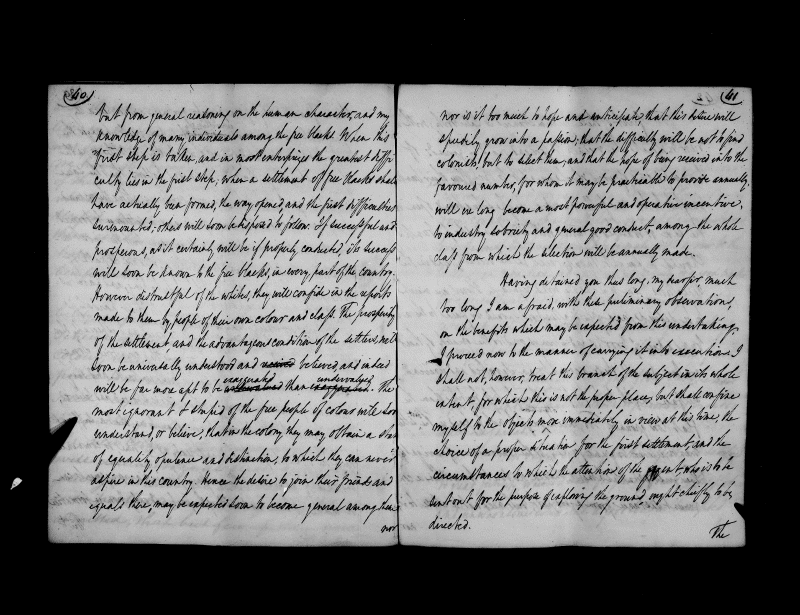 40
but from general reasoning on the human character, and my
knowledge of many individuals among the free blacks. When this
first step is taken, and in most enterprizes the greatest diffi
culty lies in the first step; when a settlement of free blacks shall
have actually been formed, the way opened and the first difficulties
surmounted; others will soon be disposed to follow. If successful and
prosperous, as it certainly will be if properly conducted, its success
will soon be known to the free blacks, in every part of the country.
However distrustful of the whites, they will confide in the reports
made to them by people of their own colour and class. The prosperity
of the settlement, and the advantageous condition of the settlers, will
soon be universally understood and believed, and indeed
exaggerated undervalued
will be far more apt to be than . The
most ignorant & stupid of the free people of colour will soon
understand, or believe, that in the colony, they may obtain a state
of equality opulence and distinction, to which they can never
aspire in this country. Hence the desire to join their friends and
equals there, may be expected soon to become general among them
nor
41
nor is it too much to hope and anticipate, that this desire will
speedily grow into a passion; that the difficulty will be not to find
colonists, but to select them; and that the hope of being received into the
favoured number, for whom it may be practicable to provide annually,
will ere long become a most powerful and operative incentive,
to industry sobriety and general good conduct, among the whole
class from which the selection will be annually made.
Having detained you thus long, my dear sir, much
too long I am afraid, with these preliminary observations,
on the benefits which may be expected from this undertaking,
I proceed now to the manner of carrying it into execution. I
shall not, however, treat this branch of the subject in its whole
extent, for which this is not the proper place, but shall confine
myself to the objects more immediately in view at this time; the
choice of a proper situation for the first settlement, and the
circumstances to which the attention of the agent who is to be
sent out for the purpose of exploring the ground, ought chiefly to be
directed.
The